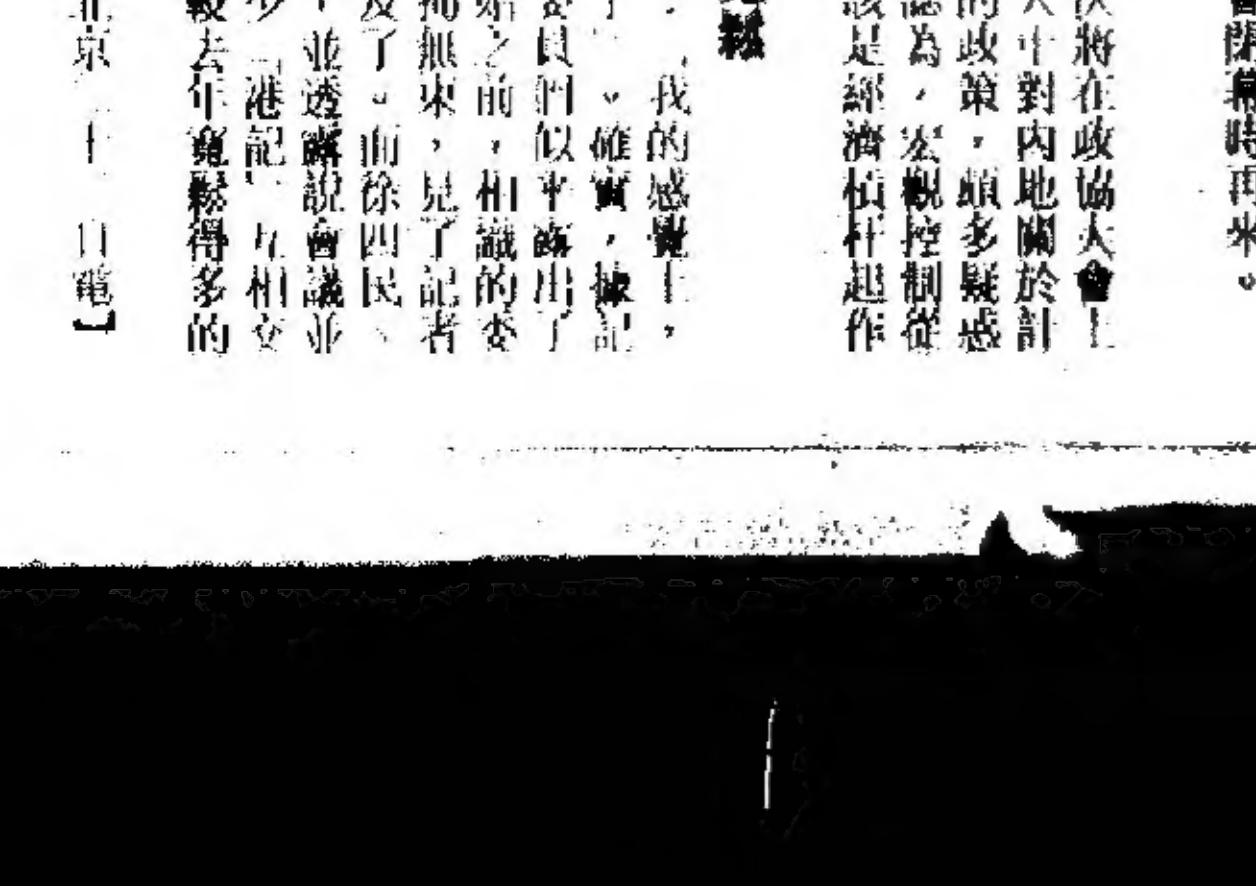 會閉幕時再來。
次將在政協大會上
大中對內地關於計
的政策，頗多疑惑
認為，宏觀控制從
該是經濟槓杆起作
鬆
，「我的感覺上，
。確實，據記
委員們似乎露出了
始之前，相識的委
拘無束，見了記者
及了。而徐四民、
，並透露說會議並
少「港記」互相交
較去年寬鬆得多的
北京 十 日電】